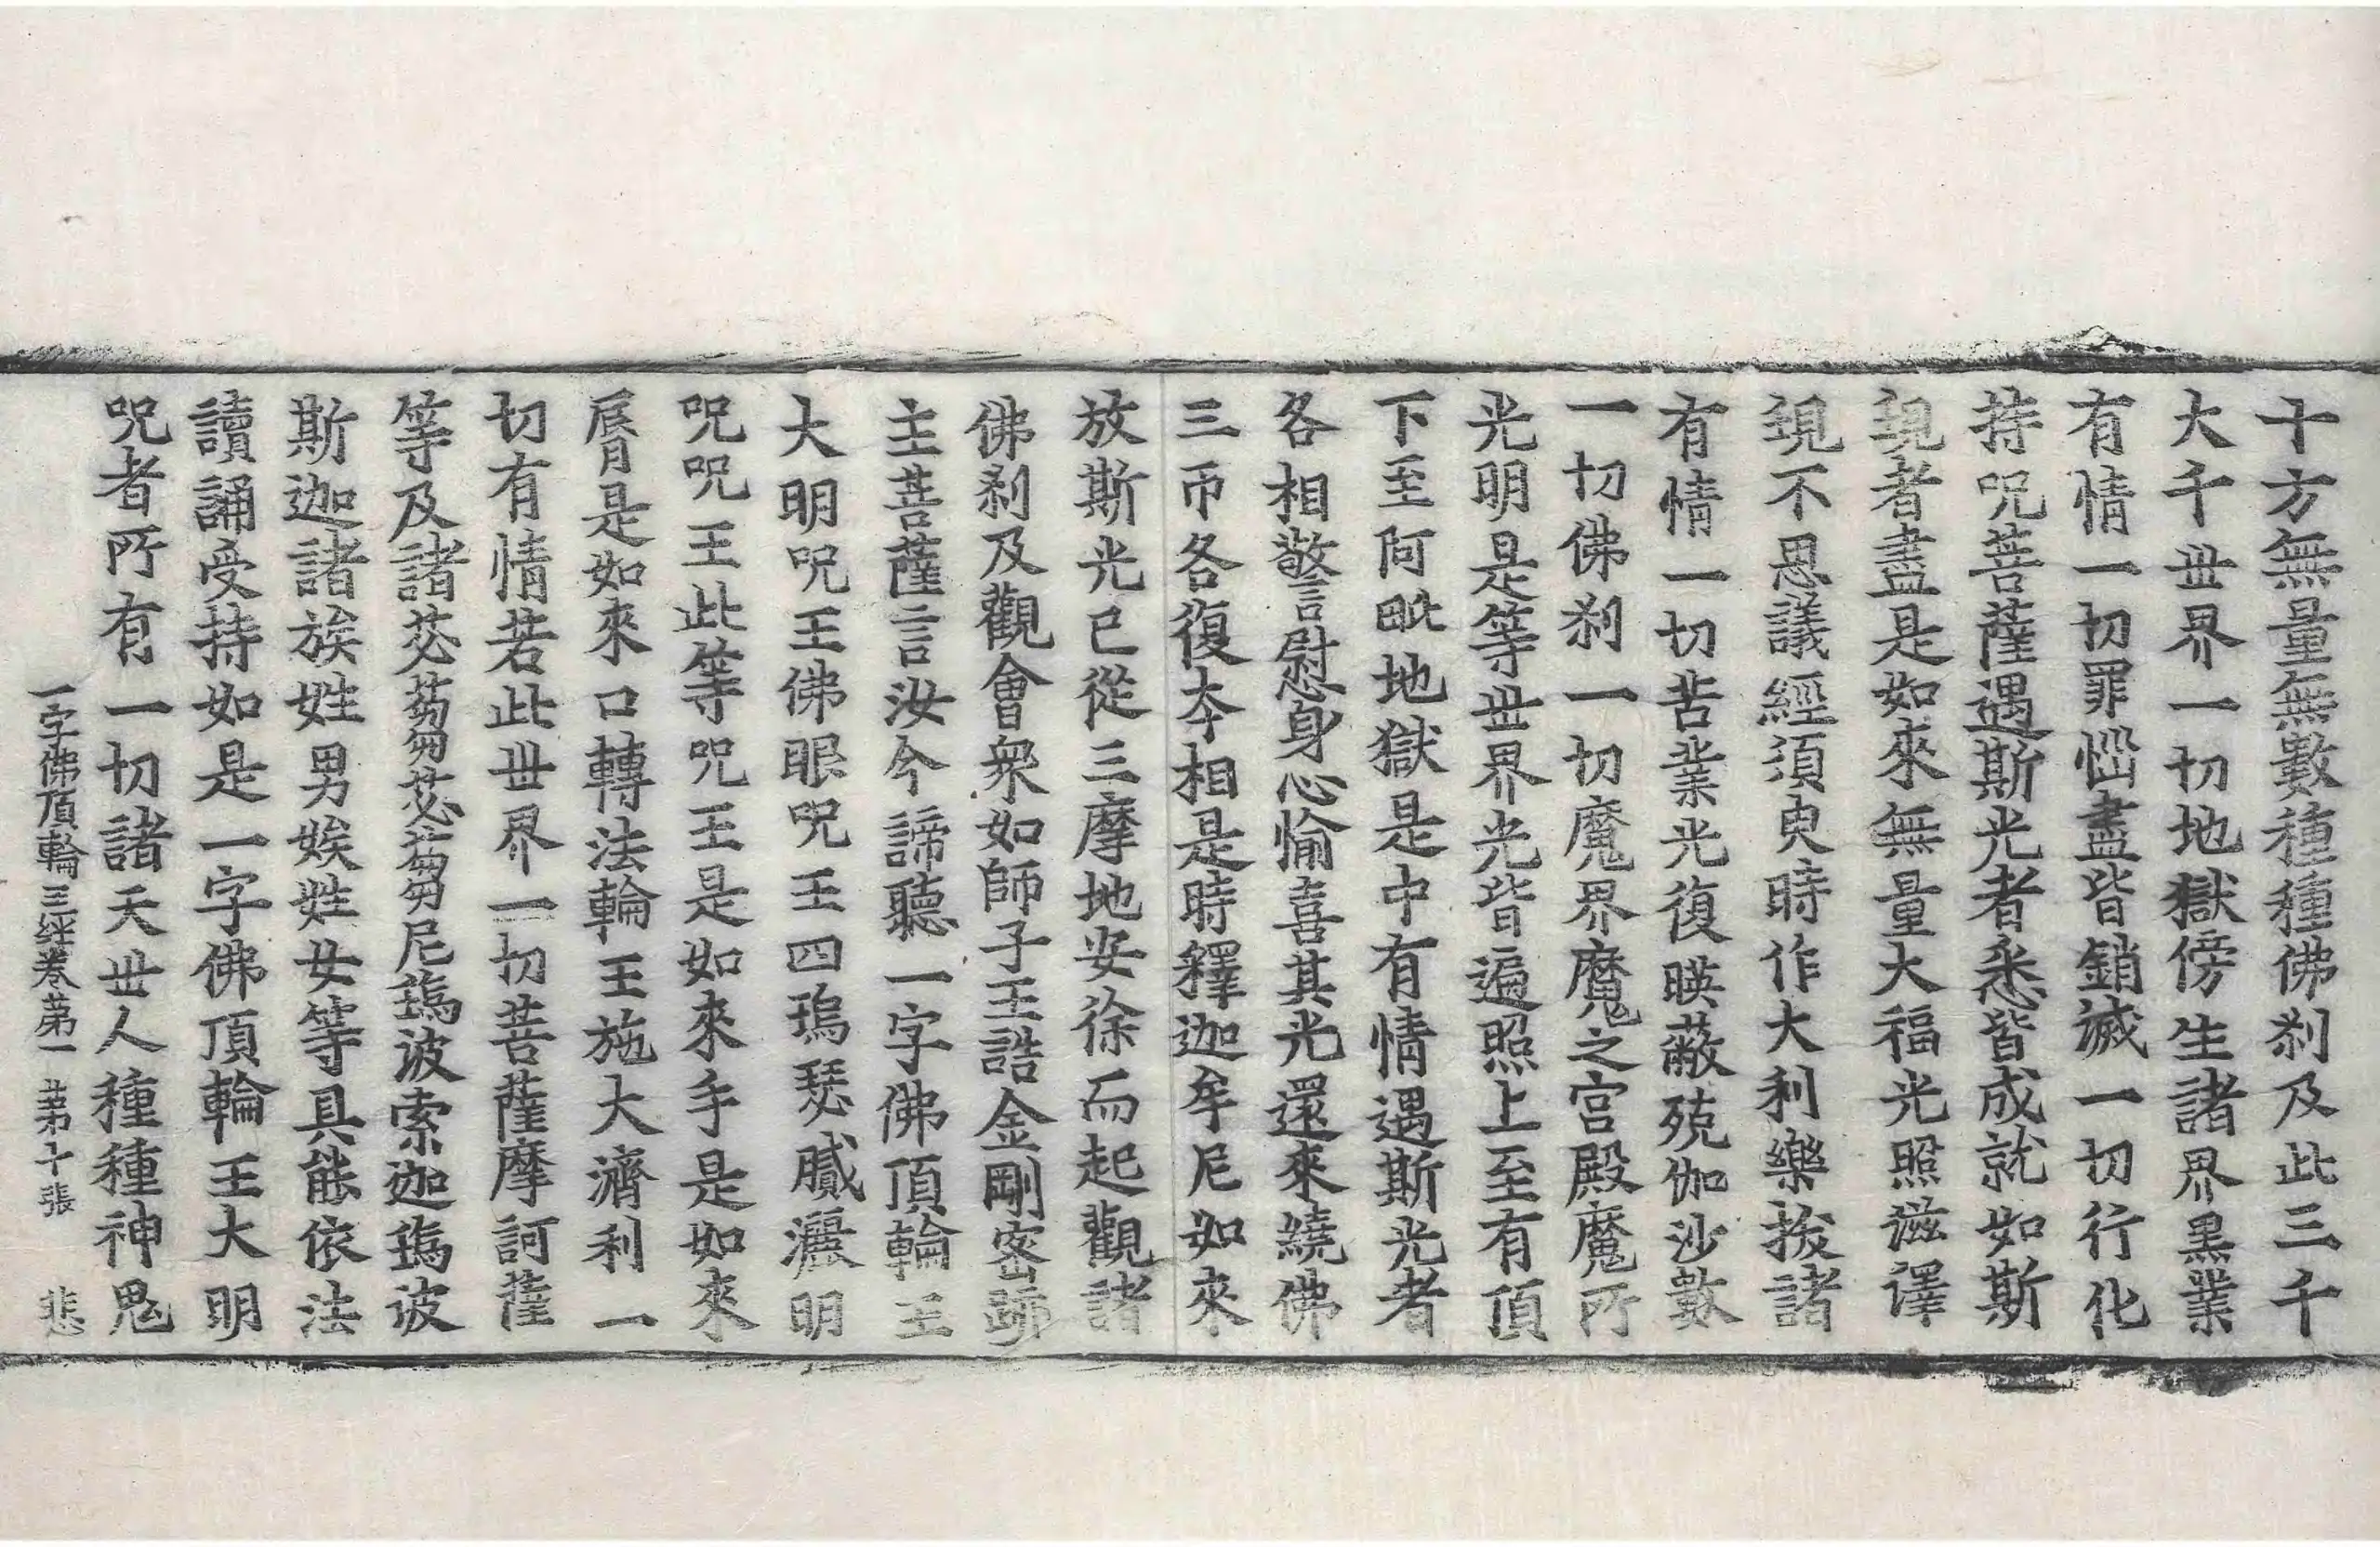 十方無量無數種種佛刹及此三千
大千丗界一切地獄傍生諸界黒業
有情一切罪惱盡皆銷滅一切行化
持呪菩薩遇斯光者悉皆成就如斯
現者盡是如來無量大福光照滋澤
現不思議經須臾時作大利樂拔諸
有情一切苦業光復暎蔽殑伽沙數
一切佛刹一切魔界魔之宮殿魔所
光明是等丗界光皆遍照上至有頂
下至阿毗地獄是中有情遇斯光者
各相警慰身心愉喜其光還來繞佛
三帀各復夲相是時釋迦牟尼如來
放斯光已從三摩地安徐而起觀諸
佛刹及觀會衆如師子王誥金剛密跡
主菩薩言汝今諦聽一字佛頂輪王
大明呪王佛眼呪王四塢瑟膩灑明
呪呪王此等呪王是如來手是如來
脣是如來口轉法輪王施大濟利一
切有情若此丗界一切菩薩摩訶薩
等及諸苾芻苾芻尼塢波索迦塢波
斯迦諸族姓男族姓女等具能依法
讀誦受持如是一字佛頂輪王大明
呪者所有一切諸天丗人種種神鬼
一字佛頂輪王經卷第一 第十張 悲